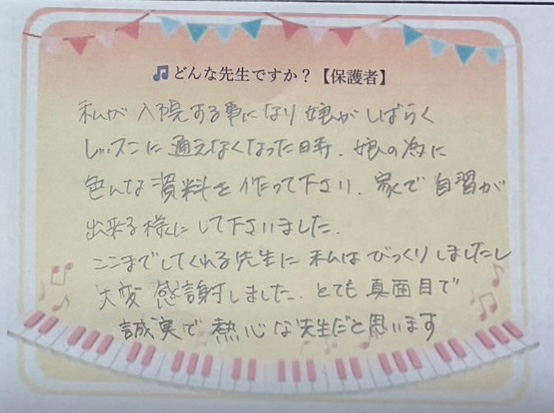 🎵どんな先生ですか？【保護者】
私が入院する事になり娘がしばらく
レッスンに通えなくなった時、娘の為に
色んな資料を作って下さい、家で自習が
出来る様にして下さいました。
ここまでしてくれる先生に私はびっくりしましたし
大変感謝しました。とても真面目で
誠実で熱心な先生だと思います